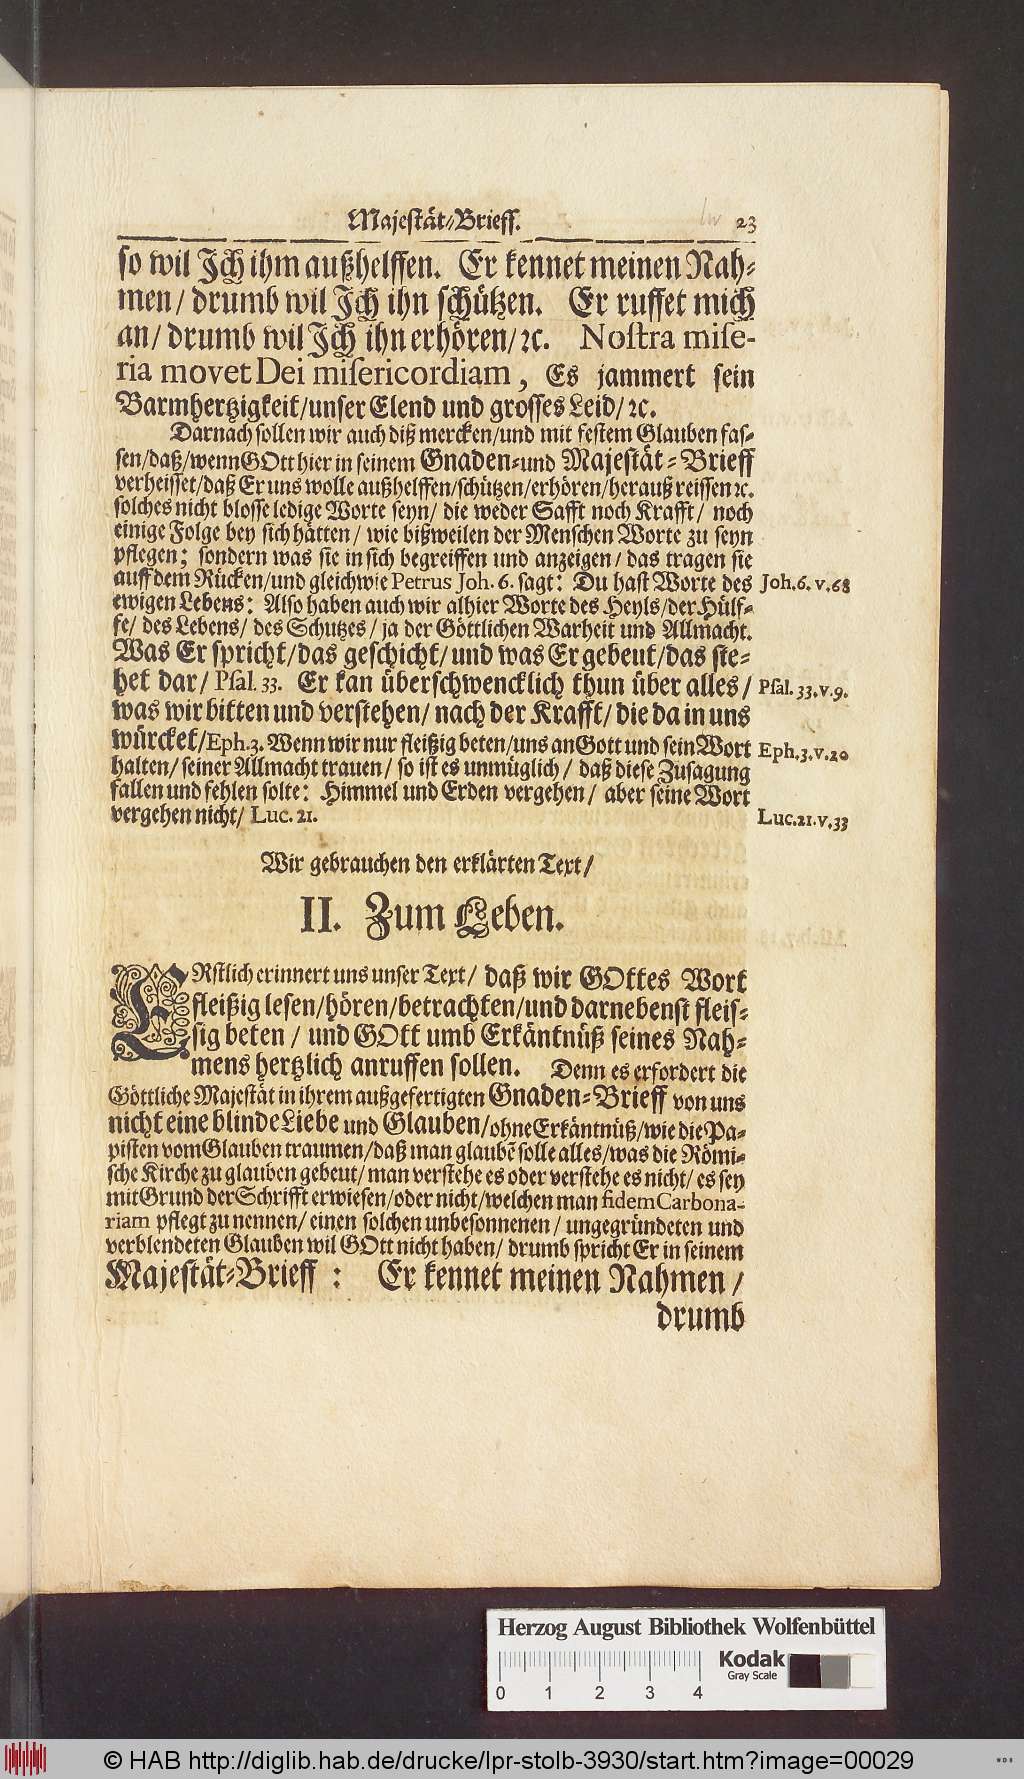 Majestät-Brieff. 23
so wil Ich ihm außhelffen. Er kennet meinen Nah-
men / drumb wil Ich ihn schützen. Er ruffet mich
an / drumb wil Ich ihn erhören / ꝛc. Nostra mise-
ria movet Dei misericordiam, Es jammert sein
Barmhertzigkeit / unser Elend und grosses Leid / ꝛc.
Darnach sollen wir auch diß mercken / und mit festem Glauben fas-
sen / daß / wenn GOtt hier in seinem Gnaden- und Majestät-Brieff
verheisset / daß Er uns wolle außhelffen / schützen / erhören / herauß reissen ꝛc.
solches nicht blosse ledige Worte seyn / die weder Safft noch Krafft / noch
einige Folge bey sich hätten / wie bißweilen der Menschen Worte zu seyn
pflegen; sondern was sie in sich begreiffen und anzeigen / das tragen sie
auff dem Rücken / und gleichwie Petrus Joh. 6. sagt: Du hast Worte des
Joh. 6. v. 68
ewigen Lebens: Also haben auch wir alhier Worte des Heyls / der Hülf-
fe / des Lebens / des Schutzes / ja der Göttlichen Warheit und Allmacht.
Was Er spricht / das geschicht / und was Er gebeut / das ste-
het dar / Psal. 33. Er kan überschwencklich thun über alles /
Psal. 33. v. 9.
was wir bitten und verstehen / nach der Krafft / die da in uns
würcket / Eph. 3. Wenn wir nur fleißig beten / uns an Gott und sein Wort
Eph. 3. v. 20
halten / seiner Allmacht trauen / so ist es unmüglich / daß diese Zusagung
fallen und fehlen solte: Himmel und Erden vergehen / aber seine Wort
vergehen nicht / Luc. 21.
Luc. 21. v. 33
Wir gebrauchen den erklärten Text /
II. Zum Leben.
ERstlich erinnert uns unser Text / daß wir GOttes Wort
fleißig lesen / hören / betrachten / und darnebenst fleis-
sig beten / und GOtt umb Erkäntnüß seines Nah-
mens hertzlich anruffen sollen. Denn es erfordert die
Göttliche Majestät in ihrem außgefertigten Gnaden-Brieff von uns
nicht eine blinde Liebe und Glauben / ohne Erkäntnüß / wie die Pa-
pisten vom Glauben traumen / daß man glaubē solle alles / was die Römi-
sche Kirche zu glauben gebeut / man verstehe es oder verstehe es nicht / es sey
mit Grund der Schrifft erwiesen / oder nicht / welchen man fidem Carbona-
riam pflegt zu nennen / einen solchen unbesonnenen / ungegründeten und
verblendeten Glauben wil GOtt nicht haben / drumb spricht Er in seinem
Majestät-Brieff : Er kennet meinen Nahmen /
drumb
Herzog August Bibliothek Wolfenbüttel
Kodak
Gray Scale
0 1 2 3 4
© HAB http://diglib.hab.de/drucke/lpr-stolb-3930/start.htm?image=00029